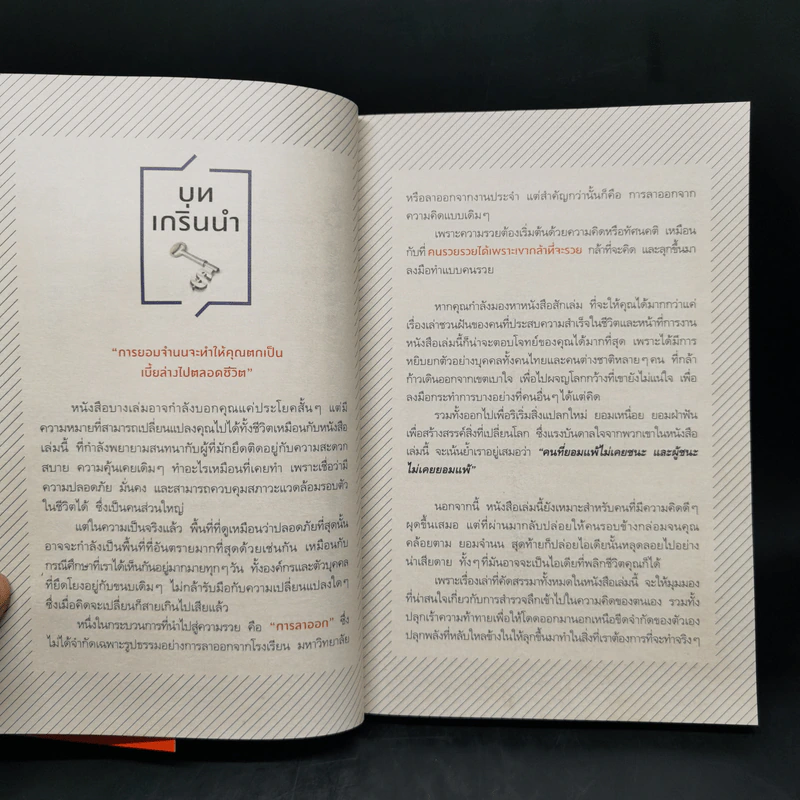 บท
เกริ่นนำ
“การยอมจำนนจะทำให้คุณตกเป็น
เบี้ยล่างไปตลอดชีวิต”
หนังสือบางเล่มอาจกำลังบอกคุณแค่ประโยคสั้นๆ แต่มี
ความหมายที่สามารถเปลี่ยนแปลงคุณไปได้ทั้งชีวิตเหมือนกับหนังสือ
เล่มนี้ ที่กำลังพยายามสนทนากับผู้ที่มักยึดติดอยู่กับความสะดวก
สบาย ความคุ้นเคยเดิมๆ ทำอะไรเหมือนที่เคยทำ เพราะเชื่อว่ามี
ความปลอดภัย มั่นคง และสามารถควบคุมสภาวะแวดล้อมรอบตัว
ในชีวิตได้ ซึ่งเป็นคนส่วนใหญ่
แต่ในความเป็นจริงแล้ว พื้นที่ที่ดูเหมือนว่าปลอดภัยที่สุดนั้น
อาจจะกำลังเป็นพื้นที่ที่อันตรายมากที่สุดด้วยเช่นกัน เหมือนกับ
กรณีศึกษาที่เราได้เห็นกันอยู่มากมายทุกๆ วัน ทั้งองค์กรและตัวบุคคล
ที่ยึดโยงอยู่กับขนบเดิมๆ ไม่กล้ารับมือกับความเปลี่ยนแปลงใดๆ
ซึ่งเมื่อคิดจะเปลี่ยนก็สายเกินไปเสียแล้ว
หนึ่งในกระบวนการที่นำไปสู่ความรวย คือ “การลาออก” ซึ่ง
ไม่ได้จำกัดเฉพาะรูปธรรมอย่างการลาออกจากโรงเรียน มหาวิทยาลัย
หรือลาออกจากงานประจำ แต่สำคัญกว่านั้นก็คือ การลาออกจาก
ความคิดแบบเดิมๆ
เพราะความรวยต้องเริ่มต้นด้วยความคิดหรือทัศนคติ เหมือน
กับที่ คนรวยรวยได้เพราะเขากล้าที่จะรวย กล้าที่จะคิด และลุกขึ้นมา
ลงมือทำแบบคนรวย
หากคุณกำลังมองหาหนังสือสักเล่ม ที่จะให้คุณได้มากกว่าแค่
เรื่องเล่าชวนฝันของคนที่ประสบความสำเร็จในชีวิตและหน้าที่การงาน
หนังสือเล่มนี้ก็น่าจะตอบโจทย์ของคุณได้มากที่สุด เพราะได้มีการ
หยิบยกตัวอย่างบุคคลทั้งคนไทยและคนต่างชาติหลายๆ คน ที่กล้า
ก้าวเดินออกจากเขตเบาใจ เพื่อไปผจญโลกกว้างที่เขายังไม่แน่ใจ เพื่อ
ลงมือกระทำการบางอย่างที่คนอื่นๆ ได้แต่คิด
รวมทั้งออกไปเพื่อริเริ่มสิ่งแปลกใหม่ ยอมเหนื่อย ยอมฝ่าฟัน
เพื่อสร้างสรรค์สิ่งที่เปลี่ยนโลก ซึ่งแรงบันดาลใจจากพวกเขาในหนังสือ
เล่มนี้ จะเน้นย้ำเราอยู่เสมอว่า “คนที่ยอมแพ้ไม่เคยชนะ และผู้ชนะ
ไม่เคยยอมแพ้”
นอกจากนี้ หนังสือเล่มนี้ยังเหมาะสำหรับคนที่มีความคิดดีๆ
ผุดขึ้นเสมอ แต่ที่ผ่านมากลับปล่อยให้คนรอบข้างกล่อมจนคุณ
คล้อยตาม ยอมจำนน สุดท้ายก็ปล่อยไอเดียนั้นหลุดลอยไปอย่าง
น่าเสียดาย ทั้งๆ ที่มันอาจจะเป็นไอเดียที่พลิกชีวิตคุณก็ได้
เพราะเรื่องเล่าที่คัดสรรมาทั้งหมดในหนังสือเล่มนี้ จะให้มุมมอง
ที่น่าสนใจเกี่ยวกับการสำรวจลึกเข้าไปในความคิดของตนเอง รวมทั้ง
ปลุกเร้าความท้าทายเพื่อให้โดดออกมานอกเหนือขีดจำกัดของตัวเอง
ปลุกพลังที่หลับใหลข้างในให้ลุกขึ้นมาทำในสิ่งที่เราต้องการที่จะทำจริงๆ